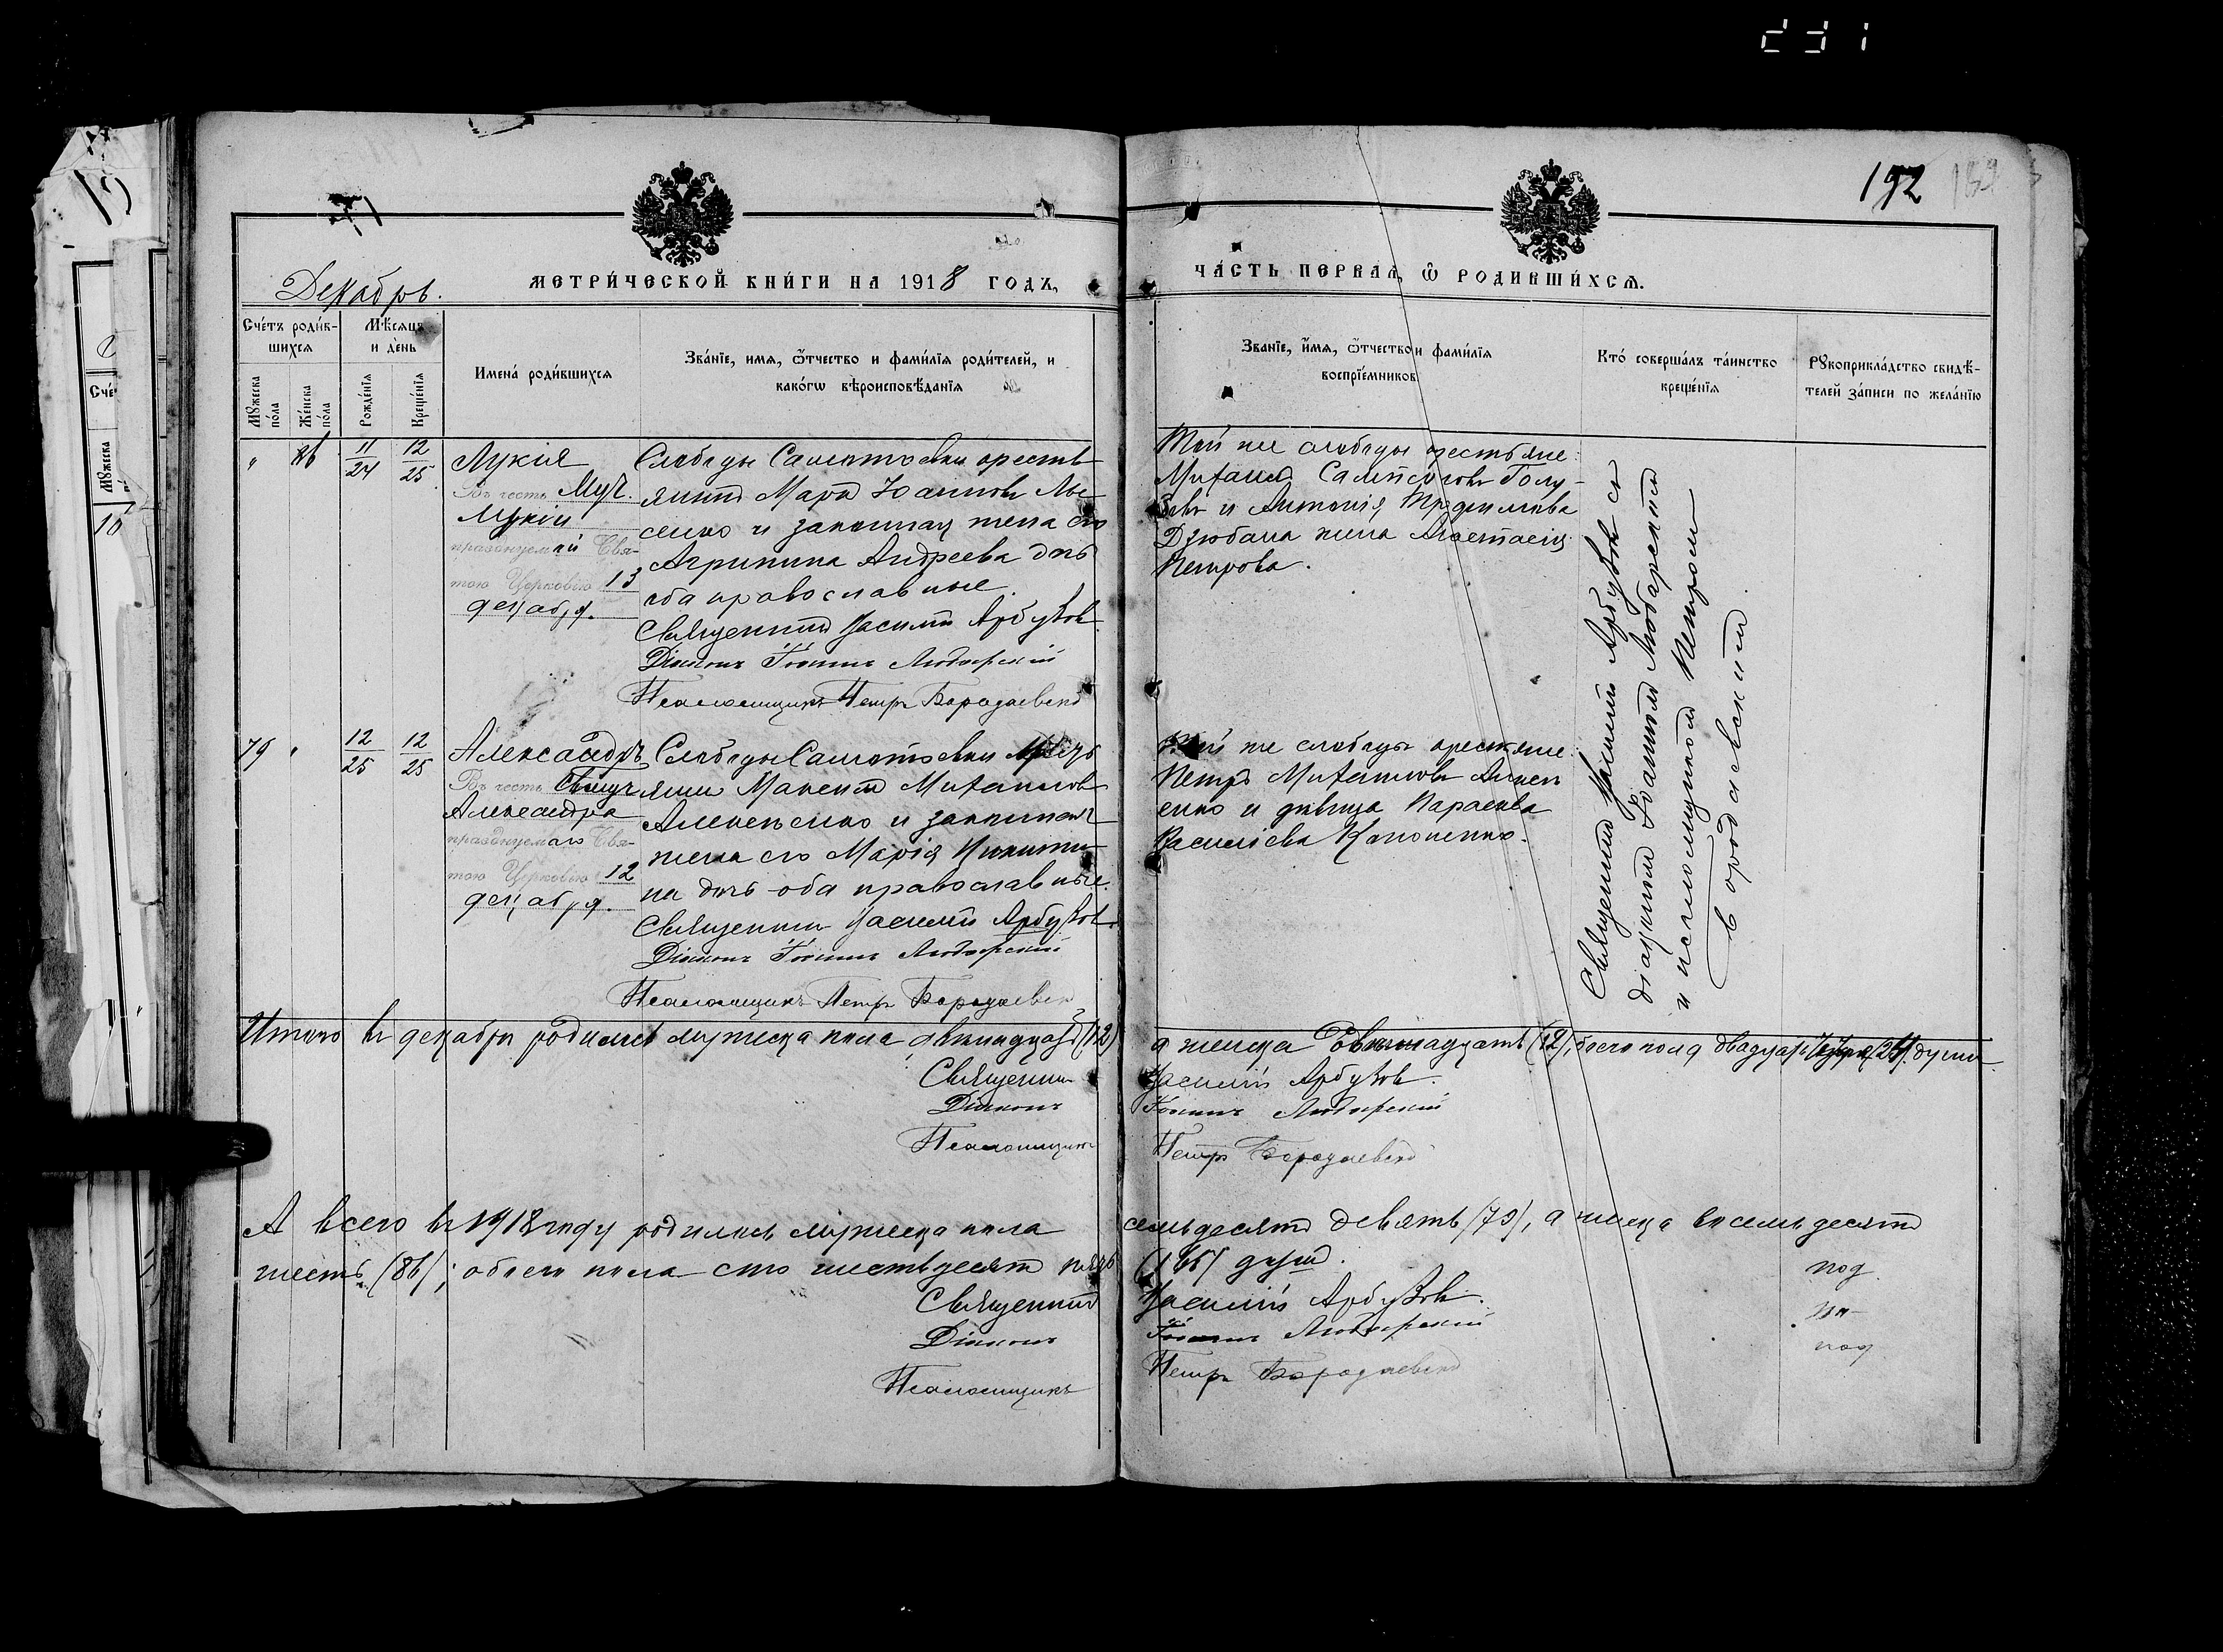 192
Декабрь.
МЕТРИ́ЧЕСКОЙ КНИ́ГИ НА 1918 ГОДЪ,
ЧА́СТЬ ПЕРВАЯ, Ѿ РОДИВШИ́ХСѦ.
Сче́тъ роди́в-
шихся
Мѣ́сяцъ
и де́нь
Мꙋ́жеска по́ла
Же́нска по́ла
Рожде́нїя
Креще́нїя
Имена́ роди́вшихся
Зва́нїе, имя, ѻ́тчество и фами́лїя роди́телей, и
како́гѡ вѣроисповѣ́данїя
Зва́нїе, и́мя, ѻ́тчество и фами́лїя
воспрїе́мниковъ
Кто́ соверша́лъ та́инство
креще́нїя
Рꙋкоприкла́дство свидѣ́-
телей за́писи по жела́нїю
" 86 11/24 12/25
Лукія
Въ честь Муч.
Лукіи
празднуемой Свя-
тою Церковью 13
декабря.
Слободы Самотоевки крестья-
янинъ Маркъ Іоанновъ Лы-
сенко и законная жена его
Агрипина Андреева дочь
оба православные.
Священникъ Василій Арбузовъ
Діаконъ Іоаннъ Любарскій
Псаломщикъ Петръ Бородаевскій
Той же слободы крестьяне:
Михаилъ Сампсоновъ Голу-
бовъ и Антонія Трофимова
Дзюбана жена Анастасія
Петрова.
Священникъ Василій Арбузовъ съ
діакономъ Іоанномъ Любарскимъ
и псаломщикомъ Петромъ
Бородаевскимъ.
79 " 12/25 12/25
Александръ
Въ честь Свящмуч
Александра
празднуемаго Свя-
тою Церковью 12
декабря.
Слободы Самотоевки крестья-
янинъ Максимъ Михаиловъ
Алексѣенко и законная
жена его Марія Никити-
на дочь оба православные.
Священникъ Василій Арбузовъ
Діаконъ Іоаннъ Любарскій
Псаломщикъ Петръ Бородаевскій
Той же слободы крестьяне:
Петръ Михаиловъ Алексѣ-
енко и дѣвица Параскева
Василіева Кононенко.
Итого въ декабрѣ родилось мужеска пола двѣнадцать (12)
а женска двѣнадцать (12), обоего пола двадцать четыре (24) души.
Священникъ Василій Арбузовъ.
Діаконъ Іоаннъ Любарскій
Псаломщикъ Петръ Бородаевскій
А всего въ 1918 году родилось мужеска пола семьдесятъ девять (79), а женска восемьдесятъ
шесть (86); обоего пола сто шестьдесятъ пять (165) душъ.
Священникъ Василій Арбузовъ.
Діаконъ Іоаннъ Любарскій
Псаломщикъ Петръ Бородаевскій